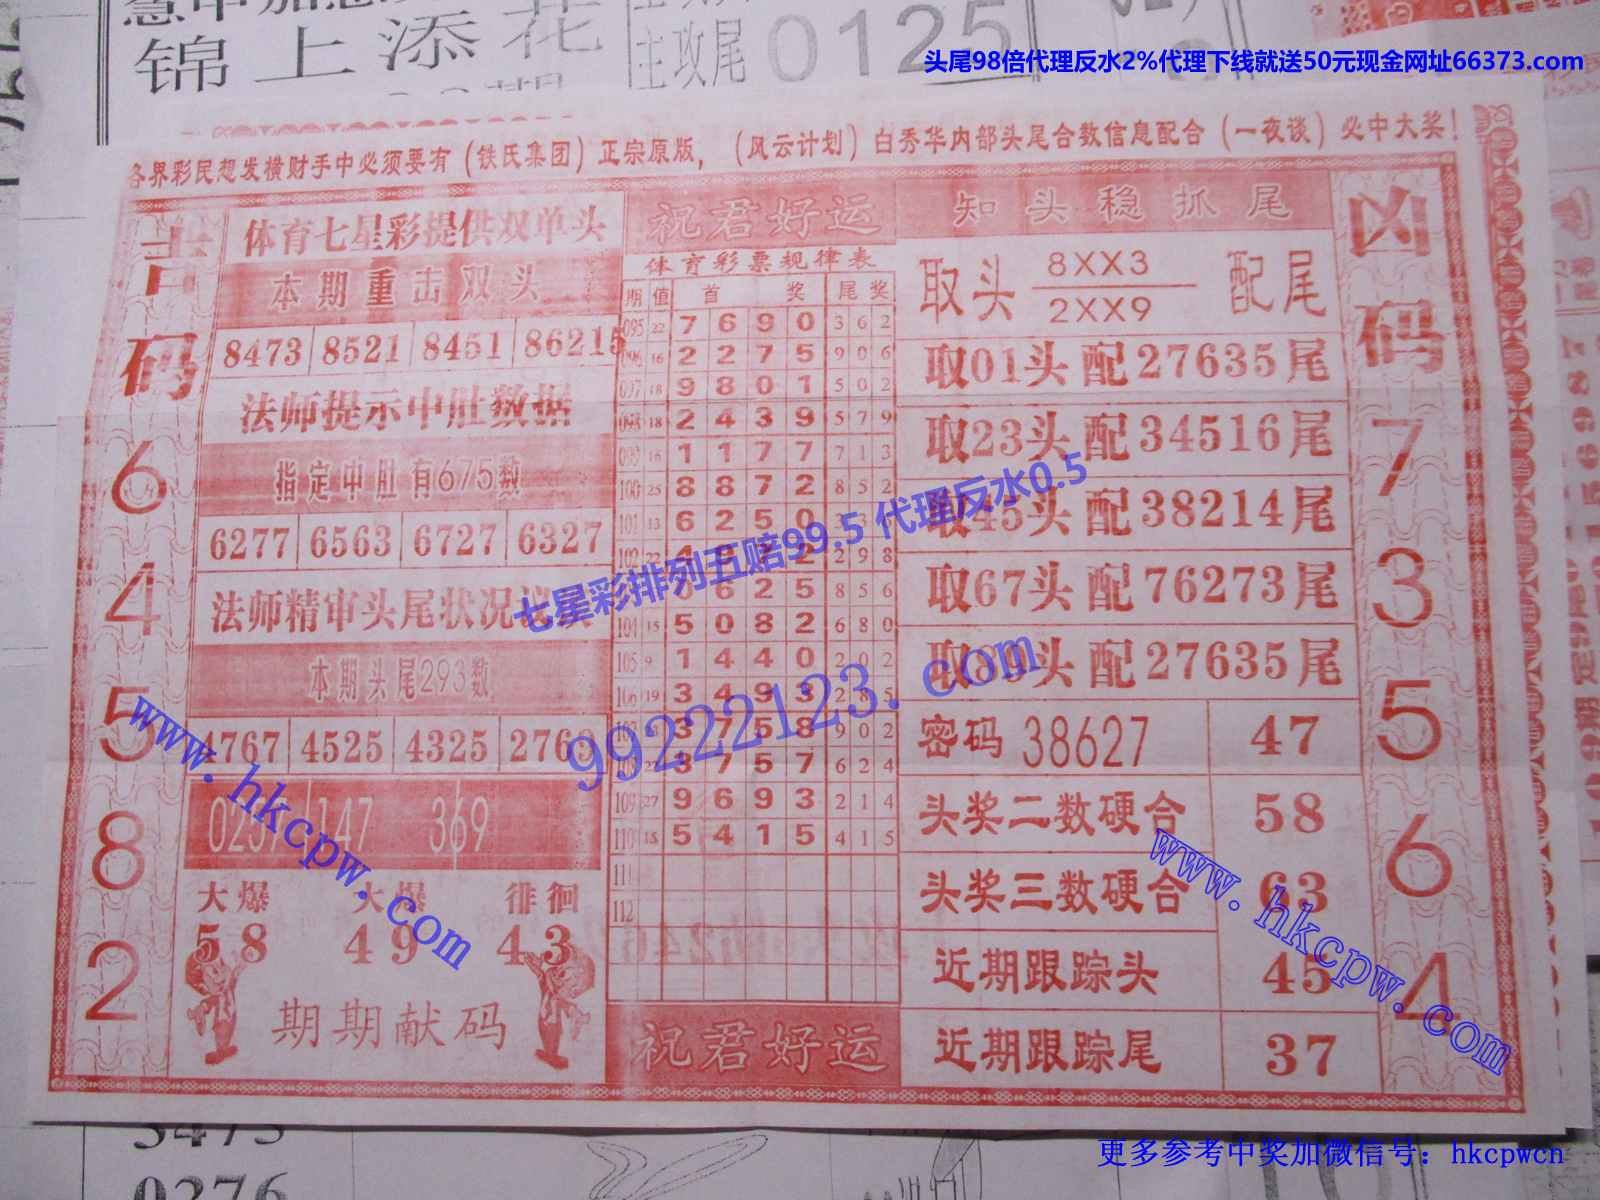 锦上添花
主攻尾 0125
头尾98倍代理反水2%代理下线就送50元现金网址66373.com
各界彩民想发横财手中必须要有（铁氏集团）正宗原版，（风云计划）白秀华内部头尾合数信息配合（一夜谈）必中大奖！
吉码
6
4
5
8
2
体育七星彩提供双单头
本期重击双头
8473 8521 8451 86215
法师提示中肚数据
指定中肚有675数
6277 6563 6727 6327
法师精审头尾状况
本期头尾293数
4767 4525 4325 276
147 369
大爆 大爆 徘徊
58 49 43
期期献码
祝君好运
体育彩票规律表
期 值 首 奖 尾 奖
095 22 7 6 9 0 3 6 2
096 16 2 2 7 5 9 0 6
097 18 9 8 0 1 5 0 2
098 18 2 4 3 9 5 7 9
099 16 1 1 7 7 7 1 3
100 25 8 8 7 2 8 5 2
101 13 6 2 5 0
102 22 2 9 8
6 2 5 8 5 6
104 15 5 0 8 2 6 8 0
105 9 1 4 4 0 2 0 2
106 19 3 4 9 3 2 8 5
107 3 7 5 8 9 0 2
108 22 3 7 5 7 6 2 4
109 27 9 6 9 3 2 1 4
110 15 5 4 1 5 4 1 5
111
112
祝君好运
知头稳抓尾
取头 8XX3 配尾
2XX9
取01头配27635尾
取23头配34516尾
取45头配38214尾
取67头配76273尾
取89头配27635尾
密码 38627 47
头奖二数硬合 58
头奖三数硬合 63
近期跟踪头 45
近期跟踪尾 37
凶码
7
3
5
6
4
七星彩排列五赔99.5 代理反水0.5
99222123.com
www.hkcpw.com
www.hkcpw.com
更多参考中奖加微信号：hkcpwcn